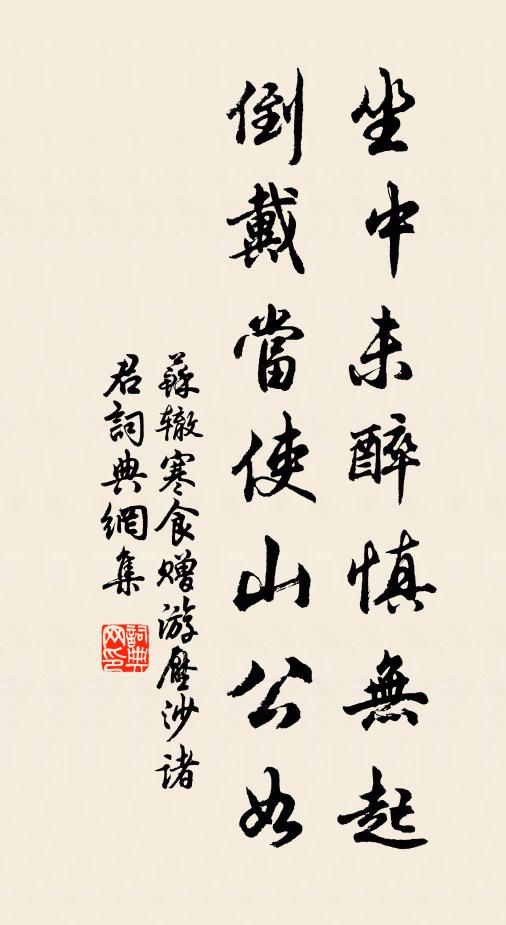 坐中未醉慎無起
倒戴當使山公如
蘇辙寒食赠游壓沙诸
君詞典網集
詞典
网印